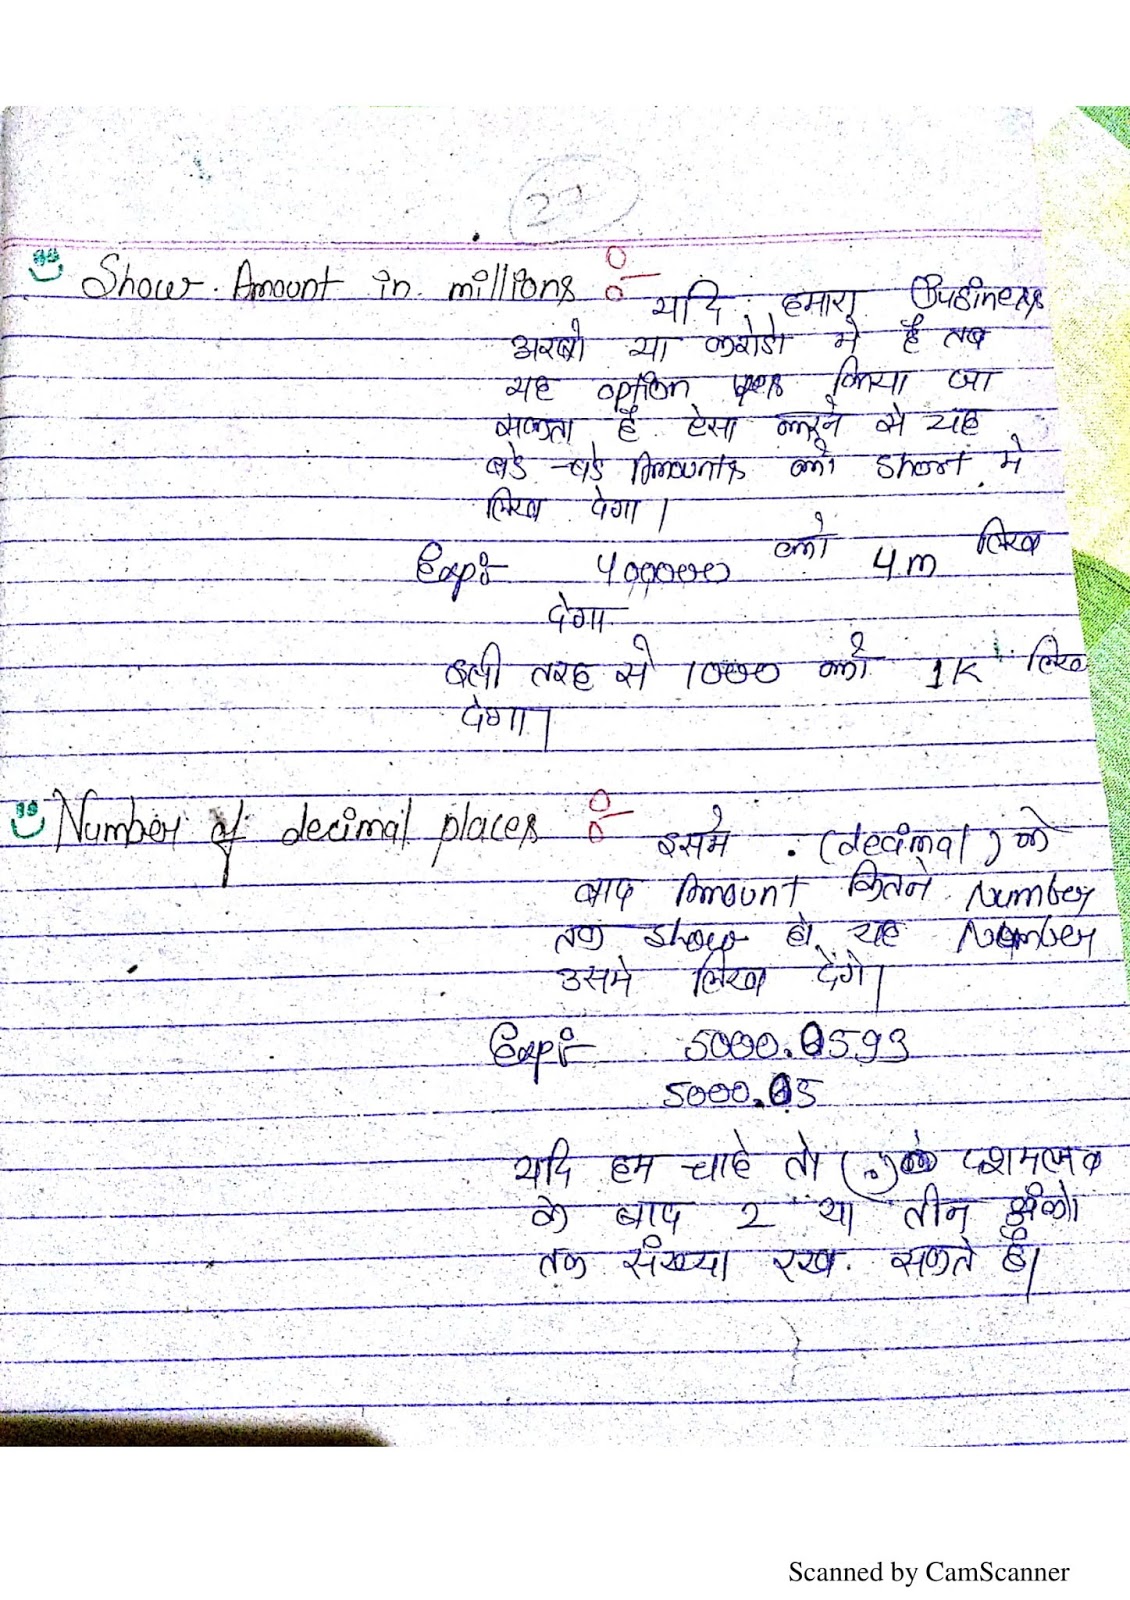 27
Show Amount in millions :-
यदि हमारा Business
अरबो या करोडो मे है तब
यह option yes किया जा
सकता है ऐसा करने से यह
बडे -बडे Amounts को short मे
लिख देगा।
Exp:- 4000000 को 4m लिख
देगा
इसी तरह से 1000 को 1K लिख
देगा।
Number of decimal places :-
इसमे . (decimal) के
बाद Amount कितने Number
तक show हो यह Number
उसमे लिख देंगे।
Exp:- 5000.0593
5000.05
यदि हम चाहे तो (.) दशमलव
के बाद 2 या तीन अंको
तक संख्या रख सकते है।
Scanned by CamScanner